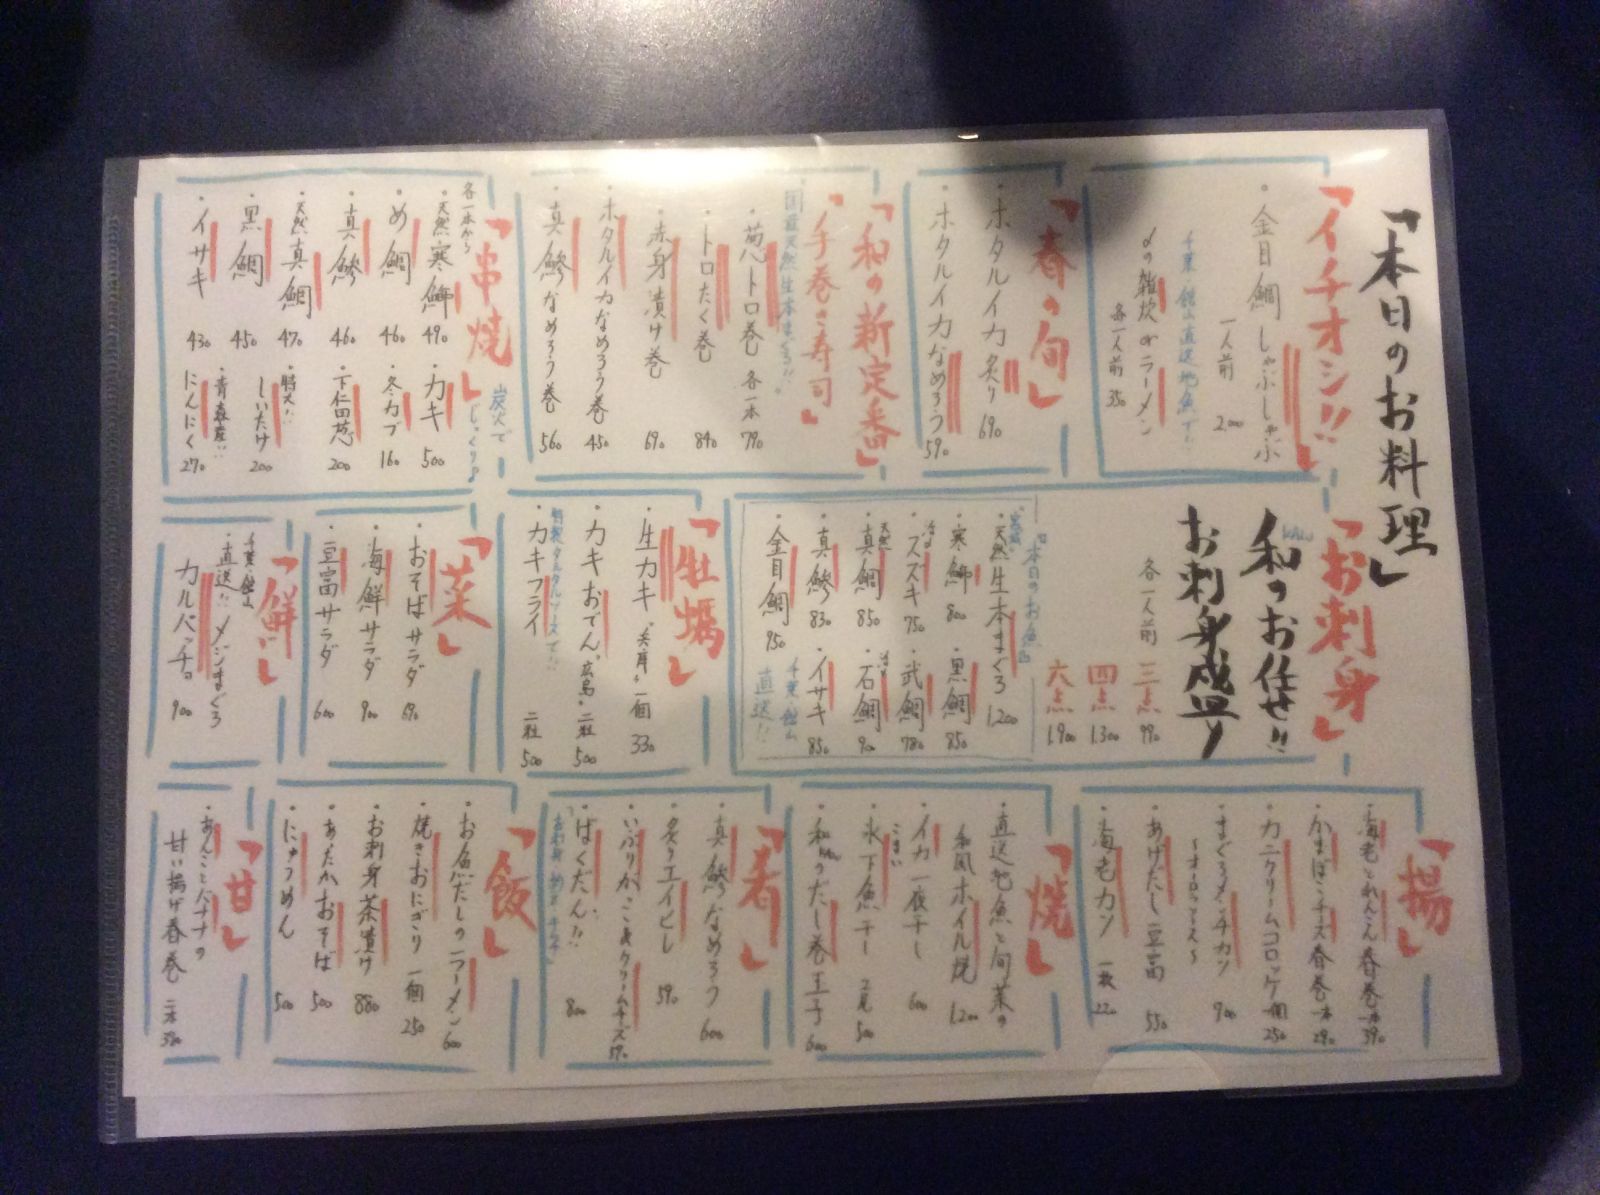 「本日のお料理」
「イチオシ!!」
・金目鯛しゃぶしゃぶ
一人前 2,000
千葉 館山直送地魚で!!
〆の雑炊orラーメン
各一人前 350
「春の旬」
・ホタルイカ炙り 690
・ホタルイカなめろう 590
「和の新定番」
「手巻き寿司」
国産天然生本まぐろ!!
・葱トロ巻 各一本 790
・トロたく巻 840
・赤身漬け巻 690
・ホタルイカなめろう巻 450
・真鯵なめろう巻 560
「串焼」
炭火でじっくり
各一本から
・天然寒鰤 490
・め鯛 460
・真鯵 460
・天然真鯛 470
・黒鯛 450
・イサキ 430
・カキ 500
・冬カブ 160
・下仁田葱 200
・特大!! しいたけ 200
・青森産!! にんにく 270
「お刺身」
和のお任せ!!
お刺身盛り
各一人前
三点 990
四点 1,300
六点 1,900
本日のお魚
・天然生本まぐろ 1,200
・寒鰤 800
・黒鯛 850
・スズキ 750
・武鯛 780
・天然真鯛 850
・石鯛 900
・真鯵 830
・イサキ 850
・金目鯛 950
千葉 館山
直送!!
「牡蠣」
・生カキ "兵庫" 一個 330
・カキおでん "広島" 二粒 500
特製タルタルソースで!!
・カキフライ 二粒 500
「菜」
・おそばサラダ 690
・海鮮サラダ 900
・豆富サラダ 600
「鮮!!」
千葉 館山
・直送!! メジまぐろ
カルパッチョ 900
「揚」
・海老とれんこん春巻 一本 390
・かまぼこチーズ春巻 一本 290
・カニクリームコロッケ 一個 250
・まぐろメンチカツ 900
・あげだし豆富 550
・海老カツ 一枚 220
「焼」
・直送地魚と旬菜の
和風ホイル焼 1,200
・イカ一夜干し 600
・氷下魚干し 2尾 500
・和のだし巻玉子 600
「肴」
・真鯵なめろう 600
・炙りエイヒレ 590
・いぶりがっこ&クリームチーズ 590
・ばくだん!! 800
「飯」
・お魚だしのラーメン 600
・焼きおにぎり 一個 250
・お刺身茶漬け 880
・あったかおそば 500
・にゅうめん 500
「甘」
・あんことバナナの
甘い揚げ春巻 二本 350